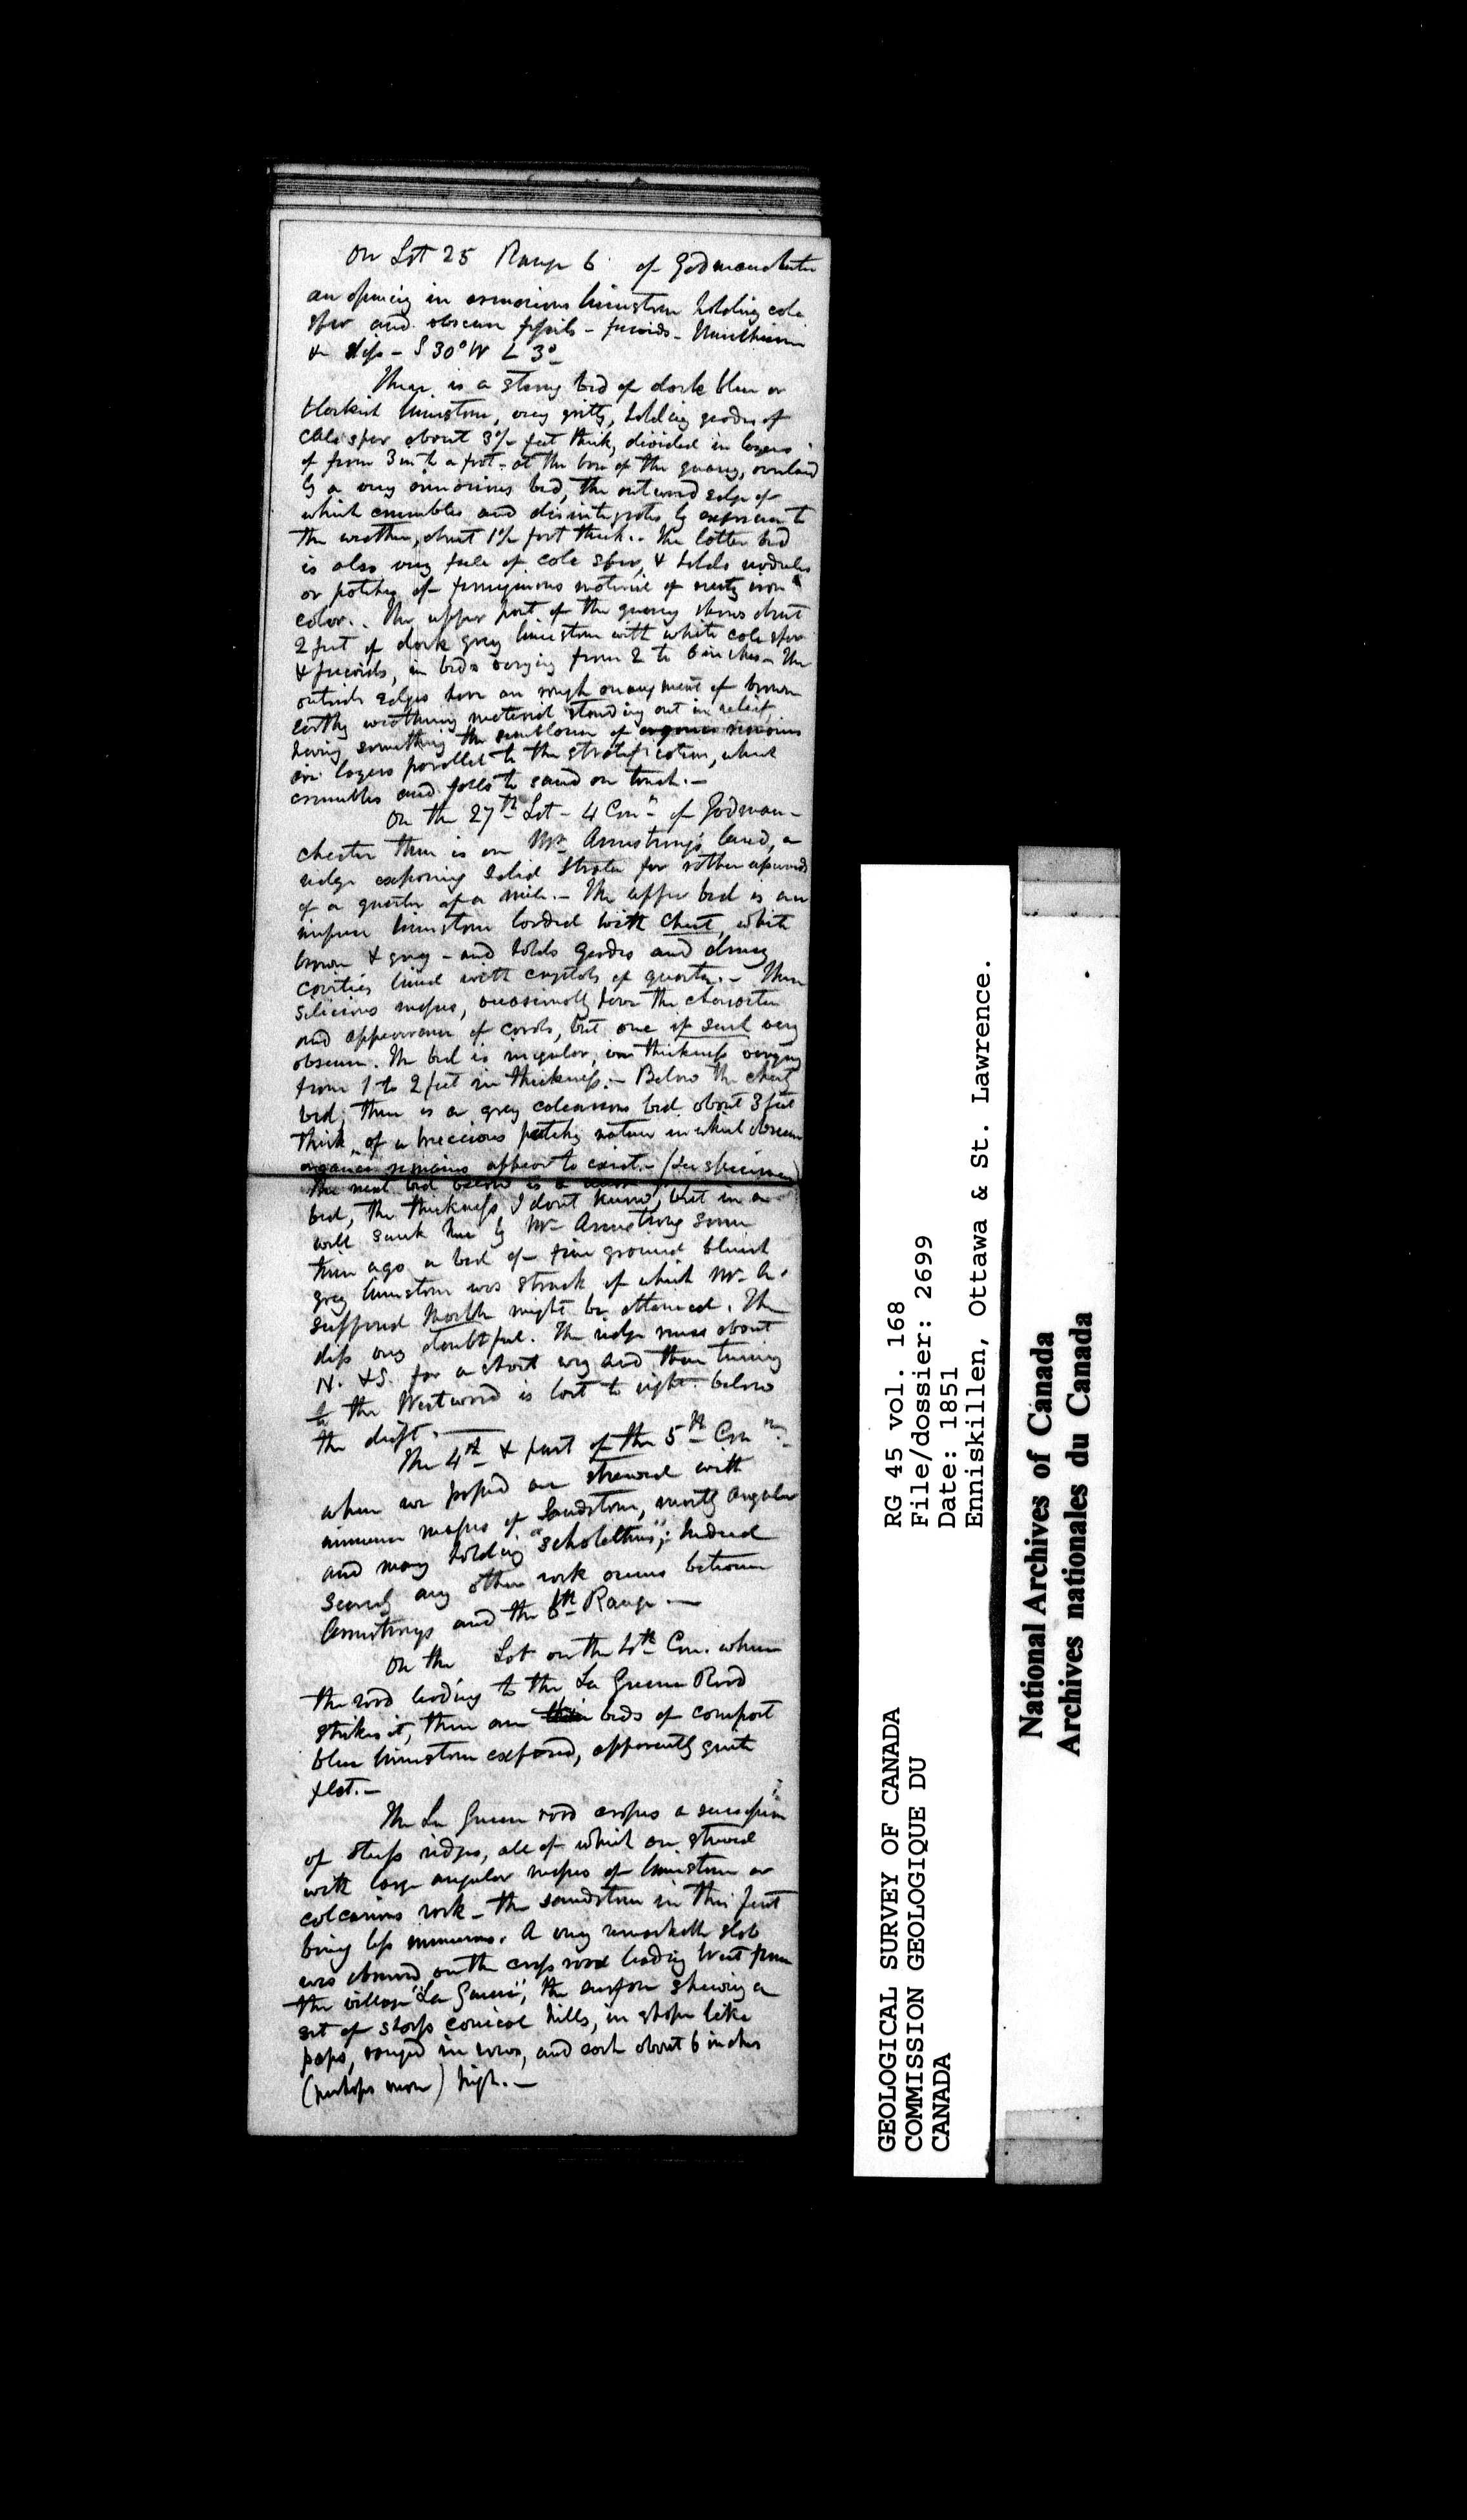 On Lot 25 Range 6 of Godmanchester
an opening in arenacious limestone holding calc
spar and obscure fossils - fucoids -
& dip - S 30° W ∠ 3°
There is a strong bed of dark blue or
blackish limestone, very gritty, holding geodes of
calc spar about 3½ feet thick, divided in layers
of from 3 in to a foot - at the base of the quarry, overlaid
by a very arenacious bed, the outward edge of
which crumbles and disintegrates by exposure to
the weather, about 1½ foot thick. - The latter bed
is also very full of calc spar, & holds nodules
or patches of ferruginous material of rusty iron
color. - The upper part of the quarry shows about
2 feet of dark grey limestone with white calc spar
& fucoids, in beds varying from 2 to 6 inches - The
outside edges have an rough arrangement of brown
earthy weathering material standing out in relief,
having something the semblance of organic remains
in layers parallel to the stratification, which
crumbles and falls to sand on touch. -
On the 27th Lot - 4 Conn of Godman-
chester there is on Mr Armstrong's land, a
ridge exposing solid strata for rather upwards
of a quarter of a mile. - The upper bed is an
impure limestone loaded with chert, white
brown & grey - and holds geodes and drusy
cavities lined with crystals of quartz. - These
silicious masses, occasionally have the character
and appearance of corals, but are if such very
obscure. The bed is irregular, in thickness varying
from 1 to 2 feet in thickness. - Below the cherty
bed, there is a grey calcareous bed about 3 feet
thick, of a breccious patchy nature in which obscure
organic remains appear to exist. - (See specimen)
The next bed below is a
bed, the thickness I dont know, but in a
well sunk here by Mr Armstrong some
time ago a bed of fine ground blueish
grey limestone was struck of which Mr A.
supposed marble might be obtained. The
dip very doubtful. The ridge runs about
N. & S. for a short way and then turning
to the Westward is lost to sight below
the drift. -
The 4th & part of the 5th Conn
where we passed are strewed with
immense masses of Sandstone, mostly angular
and many holding "scholethus"; Indeed
scarcely any other rock occurs between
Armstrongs and the 6th Range. -
On the Lot on the 4th Con. where
the road leading to the La Guerre Road
strikes it, there are beds of compact
blue limestone exposed, apparently quite
flat. -
The La Guerre road crosses a succession
of steep ridges, all of which are strewed
with large angular masses of limestone or
calcarious rock - the sandstone in this part
being less numerous. A very remarkable slab
was observed on the cross road leading West from
the village "La Guerre", the surface shewing a
set of sharp conical hills, in shape like
paps, ranged in rows, and each about 6 inches
(perhaps more) high. -
GEOLOGICAL SURVEY OF CANADA
COMMISSION GEOLOGIQUE DU
CANADA
RG 45 vol. 168
File/dossier: 2699
Date: 1851
Enniskillen, Ottawa & St. Lawrence.
National Archives of Canada
Archives nationales du Canada